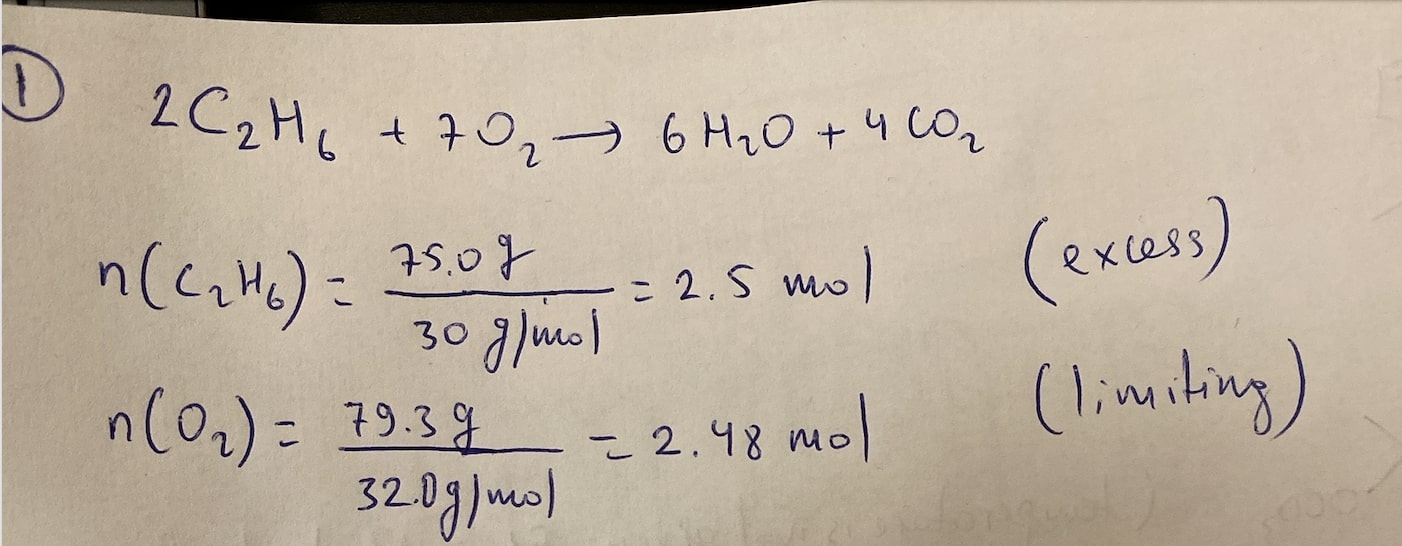 1
2C₂H₆ + 7O₂ → 6H₂O + 4CO₂
n(C₂H₆) = 75.0g / 30 g/mol = 2.5 mol (excess)
n(O₂) = 79.3g / 32.0g/mol = 2.48 mol (limiting)